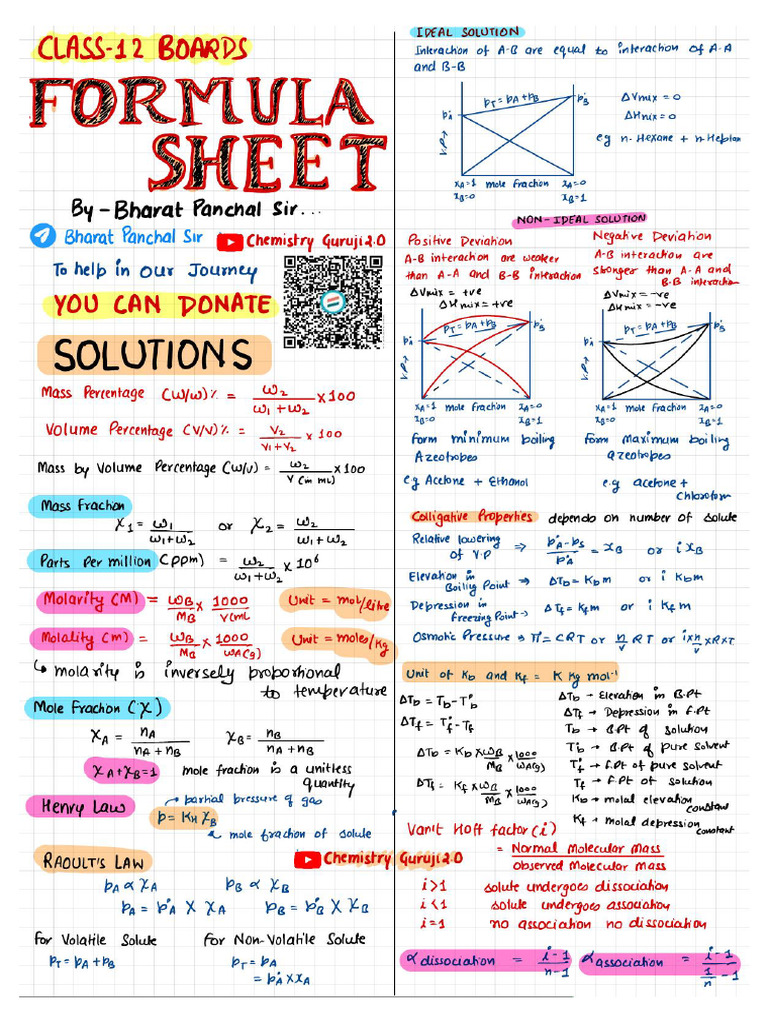 CLASS-12 BOARDS
FORMULA
SHEET
By - Bharat Panchal Sir...
Bharat Panchal Sir
Chemistry Guruji 2.0
To help in our Journey
YOU CAN DONATE
SOLUTIONS
Mass Percentage (W/W)% = ω₂/(ω₁+ω₂) × 100
Volume Percentage (V/V)% = V₂/(V₁+V₂) × 100
Mass by Volume Percentage (W/V) = ω₂/V(in mL) × 100
Mass Fraction
χ₁ = ω₁/(ω₁+ω₂) or χ₂ = ω₂/(ω₁+ω₂)
Parts Per million (ppm) = ω₂/(ω₁+ω₂) × 10⁶
Molarity (M) = ωB/MB × 1000/V(mL Unit = mol/litre
Molality (m) = ωB/MB × 1000/ωA(g) Unit = moles/kg
↳ molarity is inversely proportional
to temperature
Mole Fraction (χ)
χA = nA/(nA+nB) χB = nB/(nA+nB)
χA+χB=1 mole fraction is a unitless
quantity
Henry Law → partial pressure of gas
p = KH χB
mole fraction of solute
RAOULT'S LAW
Chemistry Guruji 2.0
pA ∝ χA pB ∝ χB
pA = p°A × χA pB = p°B × χB
for Volatile Solute for Non-Volatile Solute
pT = pA + pB pT = pA
= p°A × χA
IDEAL SOLUTION
Interaction of A-B are equal to interaction of A-A
and B-B
p°A pT = pA + pB p°B
V.P→
ΔVmix = 0
ΔHmix = 0
eg n-Hexane + n-Heptan
xA=1 mole fraction xA=0
xB=0 xB=1
NON-IDEAL SOLUTION
Positive Deviation
A-B interaction are weaker
than A-A and B-B interaction
ΔVmix = +ve
ΔHmix = +ve
p°A pT = pA + pB p°B
V.P→
xA=1 mole fraction xA=0
xB=0 xB=1
form minimum boiling
Azeotropes
eg Acetone + Ethanol
Negative Deviation
A-B interaction are
stronger than A-A and
B-B interaction
ΔVmix = -ve
ΔHmix = -ve
p°A pT = pA + pB p°B
V.P→
xA=1 mole fraction xA=0
xB=0 xB=1
form maximum boiling
azeotropes
e.g acetone +
Chloroform
Colligative Properties depends on number of solute
Relative lowering
of V.P ⇒ (p°A - ps)/p°A = χB or i χB
Elevation in
Boiling Point → ΔTb = Kb m or i Kb m
Depression in
freezing Point → ΔTf = Kf m or i Kf m
Osmotic Pressure → π = CRT or n/V RT or i×n/V ×R×T
Unit of Kb and Kf = K Kg mol⁻¹
ΔTb = Tb - T°b
ΔTf = T°f - Tf
ΔTb = Kb × ωB/MB × 1000/ωA(g)
ΔTf = Kf × ωB/MB × 1000/ωA(g)
ΔTb → Elevation in B.Pt
ΔTf → Depression in F.Pt
Tb → B.Pt of solution
T°b → B.Pt of pure solvent
T°f → f.Pt of pure solvent
Tf → F.Pt of solution
Kb → molal elevation
constant
Kf → molal depression
constant
Vant Hoff factor (i)
= Normal Molecular Mass
Observed Molecular Mass
i>1 solute undergoes dissociation
i<1 solute undergoes association
i=1 no association no dissociation
α dissociation = (i-1)/(n-1) α association = (i-1)/(1/n - 1)